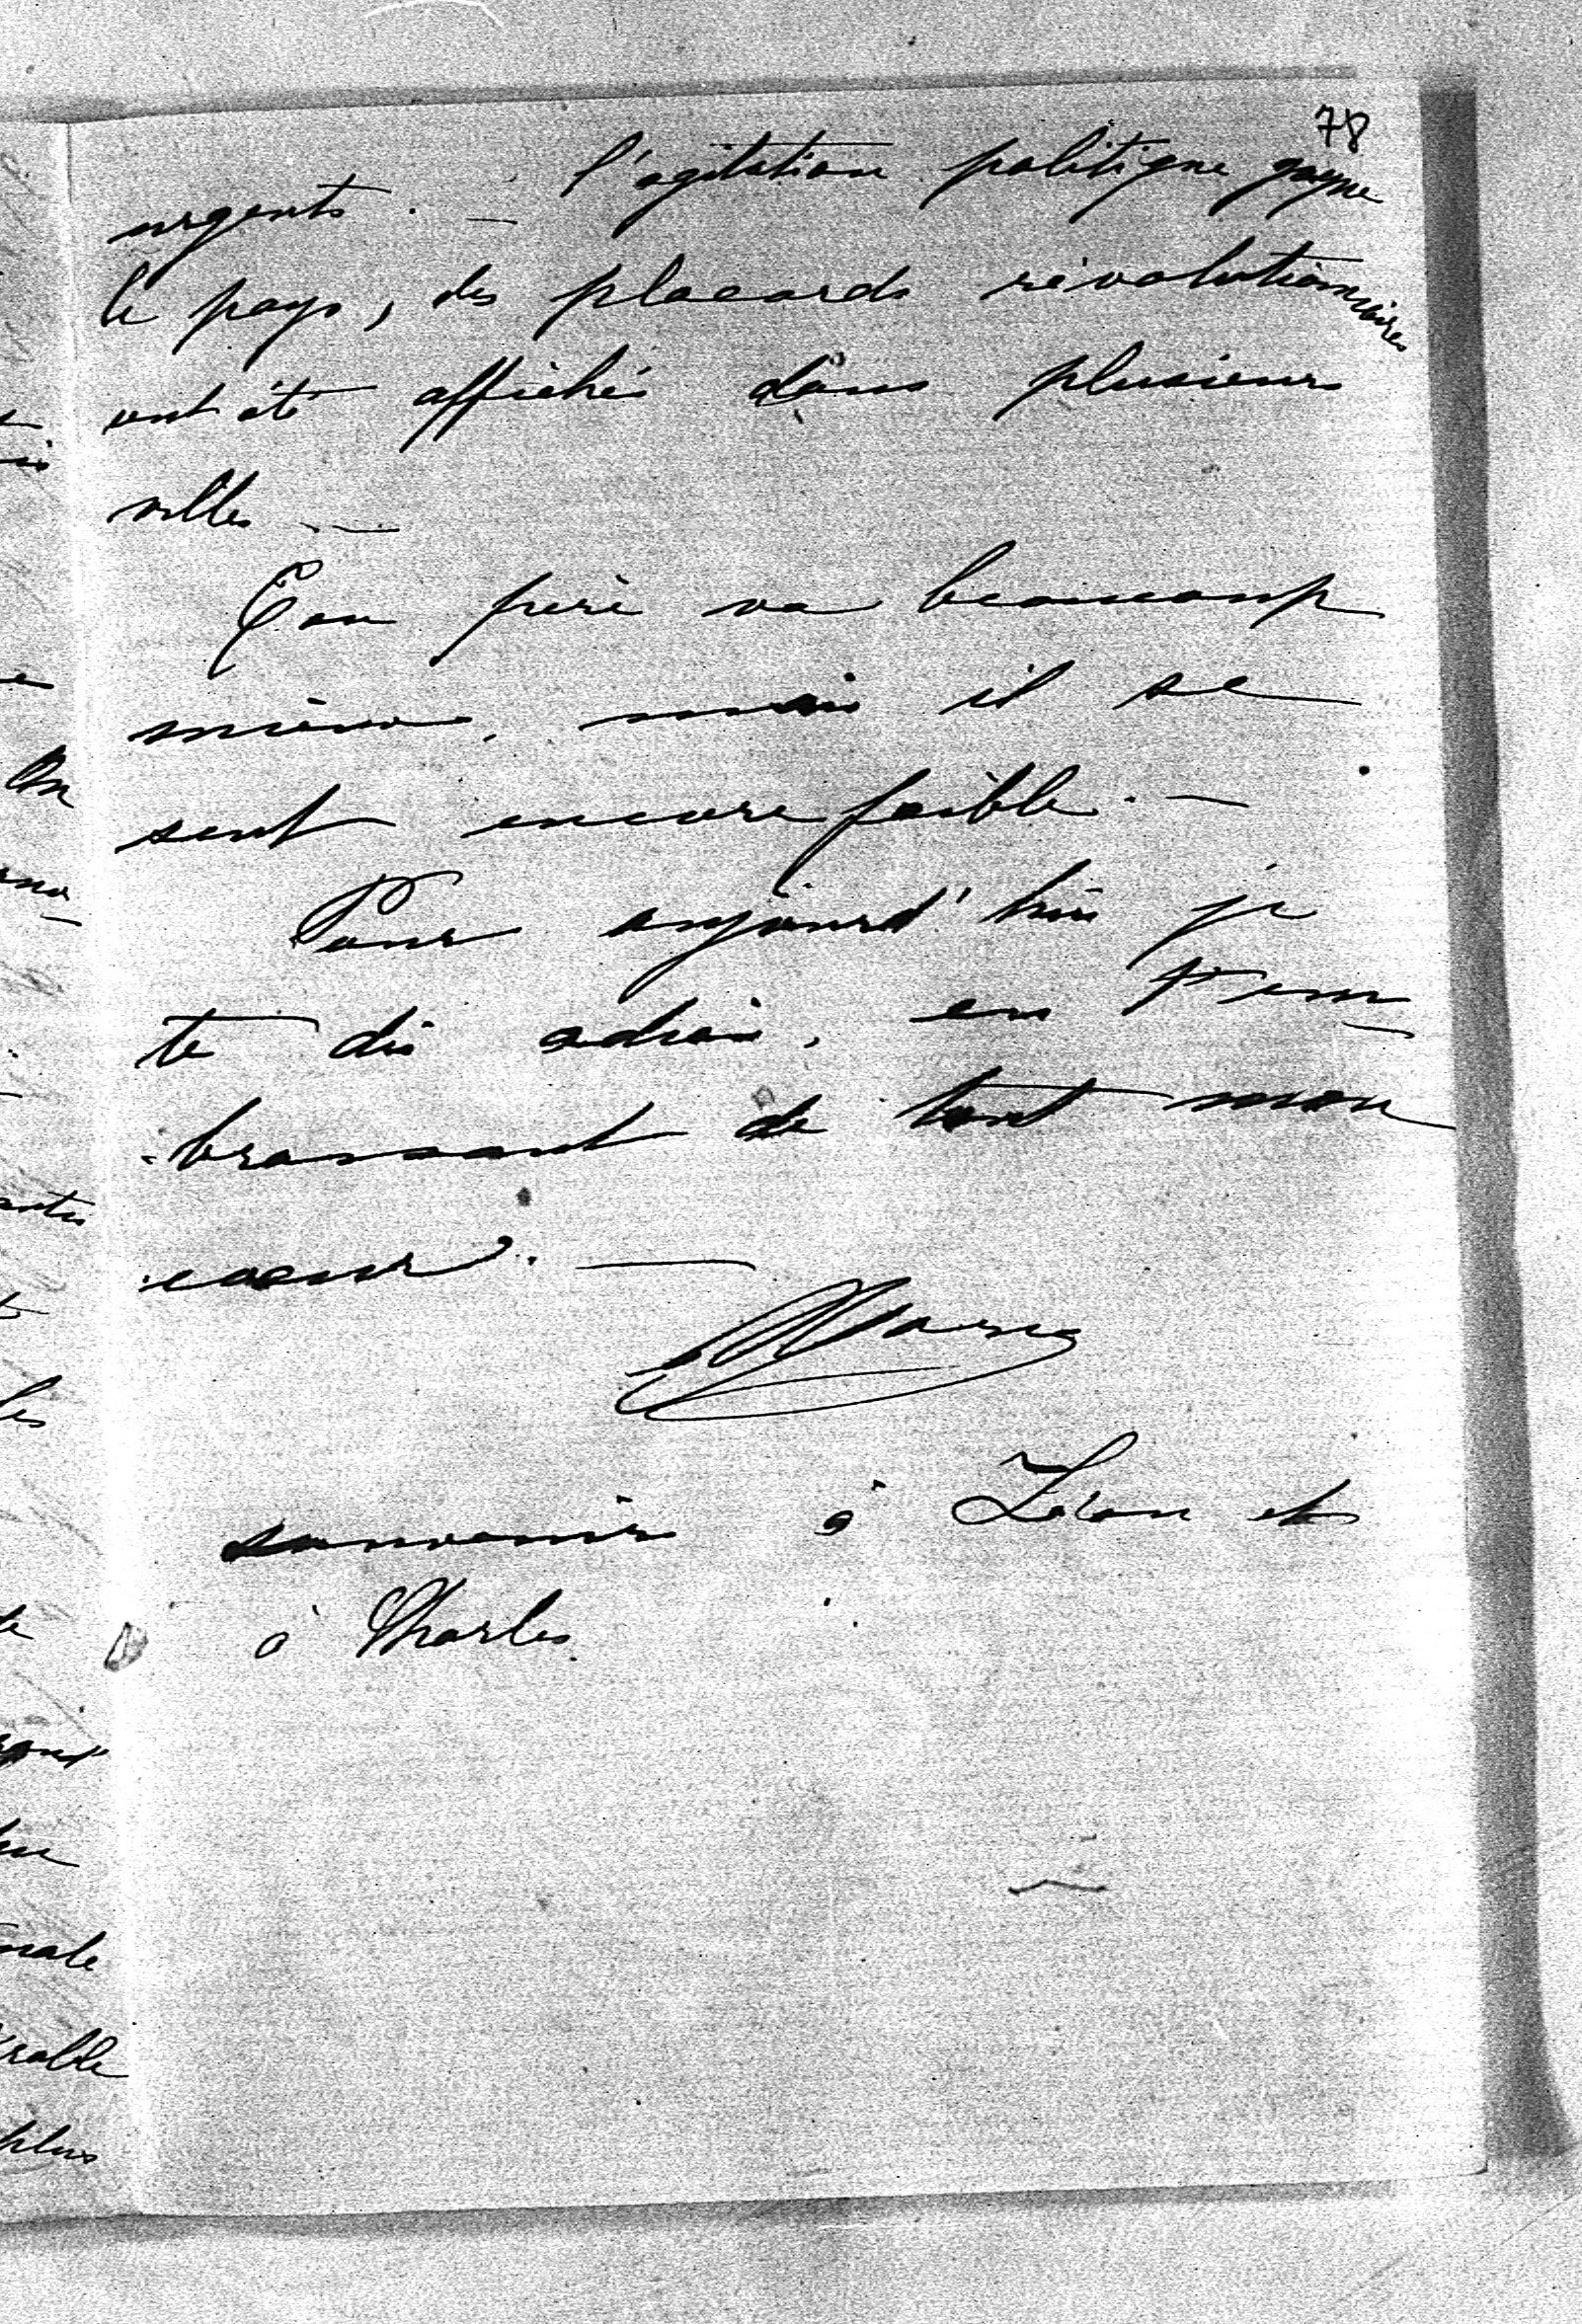 78
urgents. — l'agitation politique gagne
le pays, des placards révolutionnaires
ont été affichés dans plusieurs
villes. —
Ton père va beaucoup
mieux, mais il se
sent encore faible. —
Pour aujourd'hui je
te dis adieu, en t'em
-brassant de tout mon
coeur. —
souvenirs à Léon et
à Charles.